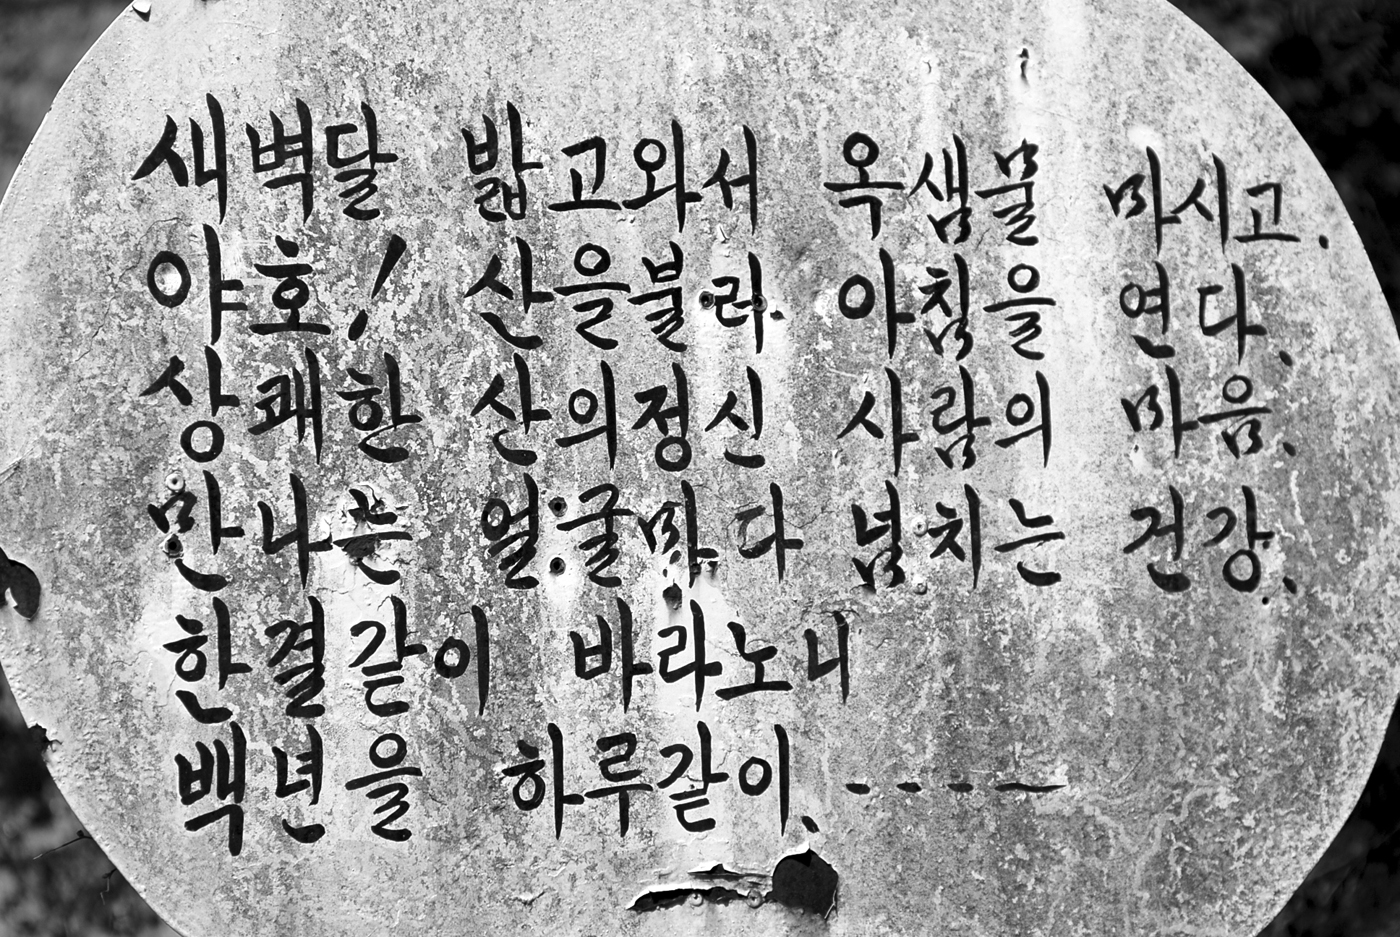 새벽달 밟고와서 옥샘물 마시고.
야호! 산을불러. 아침을 연다.
상쾌한 산의정신 사람의 마음.
만나는 얼굴마다 넘치는 건강.
한결같이 바라노니
백년을 하루같이. ----